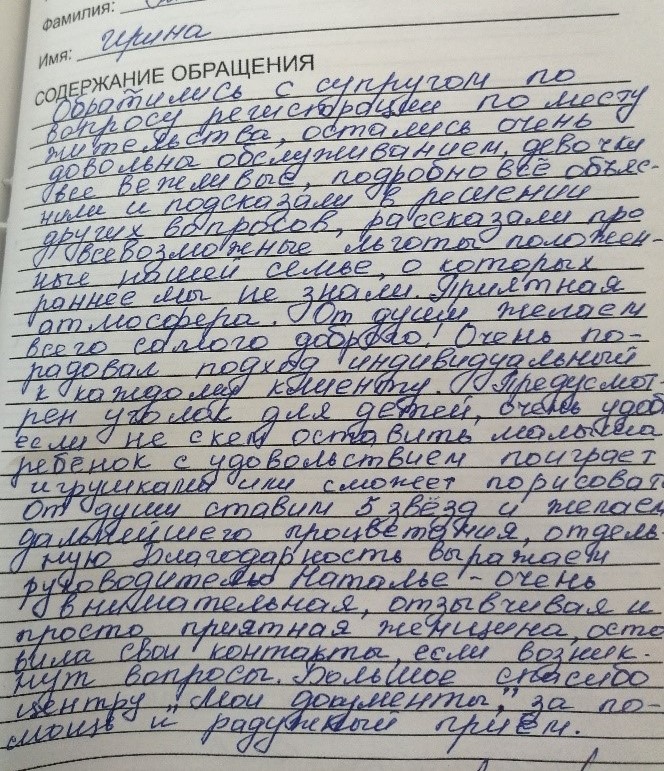 Фамилия:
Имя: Ирина
СОДЕРЖАНИЕ ОБРАЩЕНИЯ
Обратились с супругом по
вопросу регистрации по месту
жительства, остались очень
довольны обслуживанием, девочки
все вежливые, подробно всё объяс-
нили и подсказали в решении
других вопросов, рассказали про
всевозможные льготы положен-
ные нашей семье, о которых
раннее мы не знали. Приятная
атмосфера. От души желаем
всего самого доброго! Очень по-
радовал подход индивидуальный
к каждому клиенту. Предусмот-
рен уголок для детей, очень удоб
если не с кем оставить малыша
ребёнок с удовольствием поиграет
игрушками или сможет порисоват
От души ставим 5 звёзд и желаем
дальнейшего процветания, отдель-
ную благодарность выражаем
руководителю Наталье - очень
внимательная, отзывчивая и
просто приятная женщина, оста
вила свои контакты, если возник-
нут вопросы. Большое спасибо
центру "Мои документы", за по-
мощь и радужный приём.